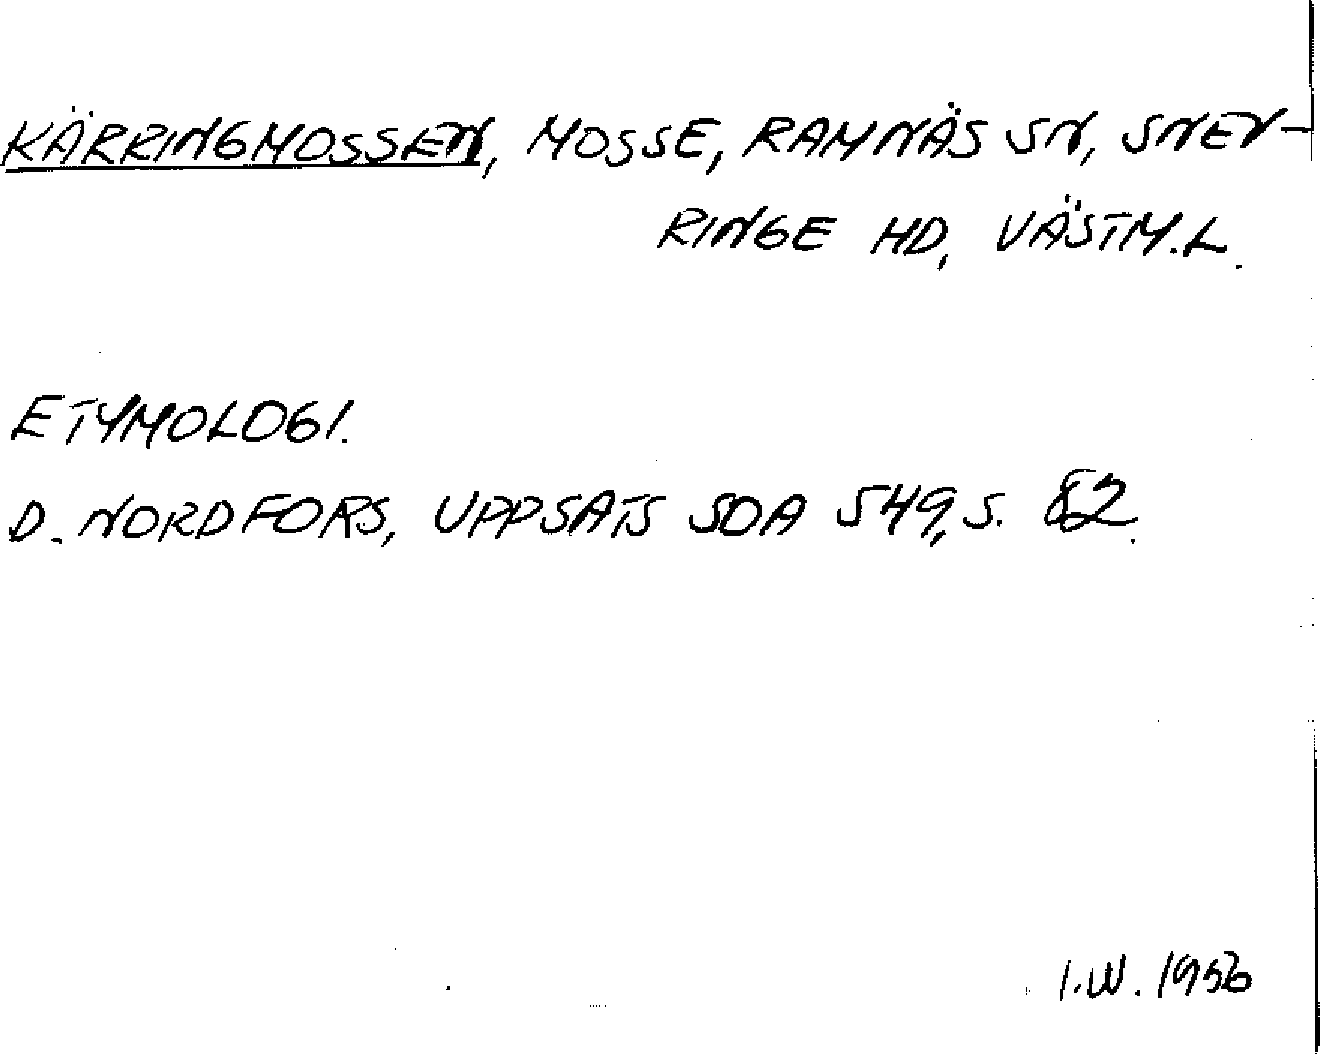 KÄRRINGMOSSEN, MOSSE, RAMNÄS SN, SNEV-
RINGE HD, VÄSTM.L.
ETYMOLOGI.
D. NORDFORS, UPPSATS SOA 549, S. 82.
I.W. 1956